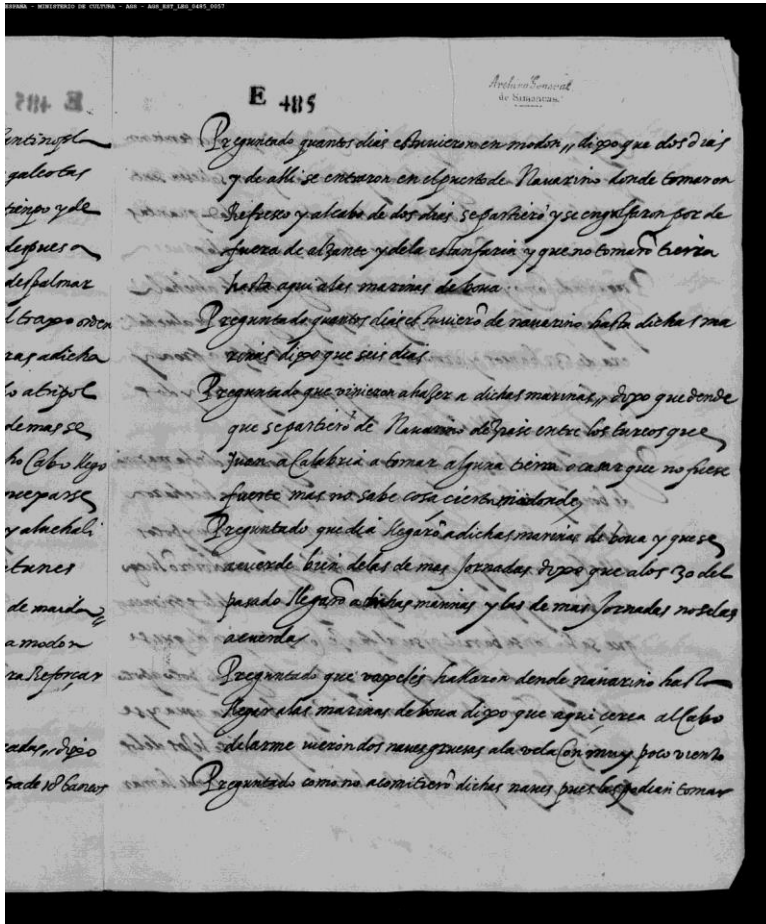 ESPAÑA - MINISTERIO DE CULTURA - AGS - AGS_EST_LEG_0485_0057
E 485
Archivo General
de Simancas.
galeotas
tienpo y de
despues a
despalmar
l trapo orden
ras a dicha
lo a tripol
demas se
ho Cabo llego
y aluchali
de mardon
a modon
ra Reforçar
cadas, dixo
Preguntado quantos dias estuvieron en modon,, dixo que dos dias
y de alli se entraron en el puerto de Navarino donde tomaron
Refresco y al cabo de dos dias se partierō y se engulfaron por de
fuera de alzante y dela estanfaria y que no tomarō tierra
hasta aqui alas marinas de boua
Preguntado quantos dias estuvierō de navarino hasta dichas ma
rinas dixo que seis dias
Preguntado que vinieron a hazer a dichas marinas,, dixo que dende
que se partierō de Navarino dezian se entre los turcos que
yuan a Calabria a tomar alguna tierra o casar que no fuese
fuerte mas no sabe cosa cierta ni donde
Preguntado que dia llegarō a dichas marinas de boua y que se
acuerde bien delas de mas Jornadas dixo que alos 30 del
pasado llegarō a dichas marinas y las de mas Jornadas no selas
acuerda
Preguntado que vaxeles hallaron dende navarino hasta
llegar alas marinas de boua dixo que aqui cerca al Cabo
delarme vieron dos naves gruesas ala vela Con muy poco viento
Preguntado como no acomitierō dichas naves pues las podian tomar